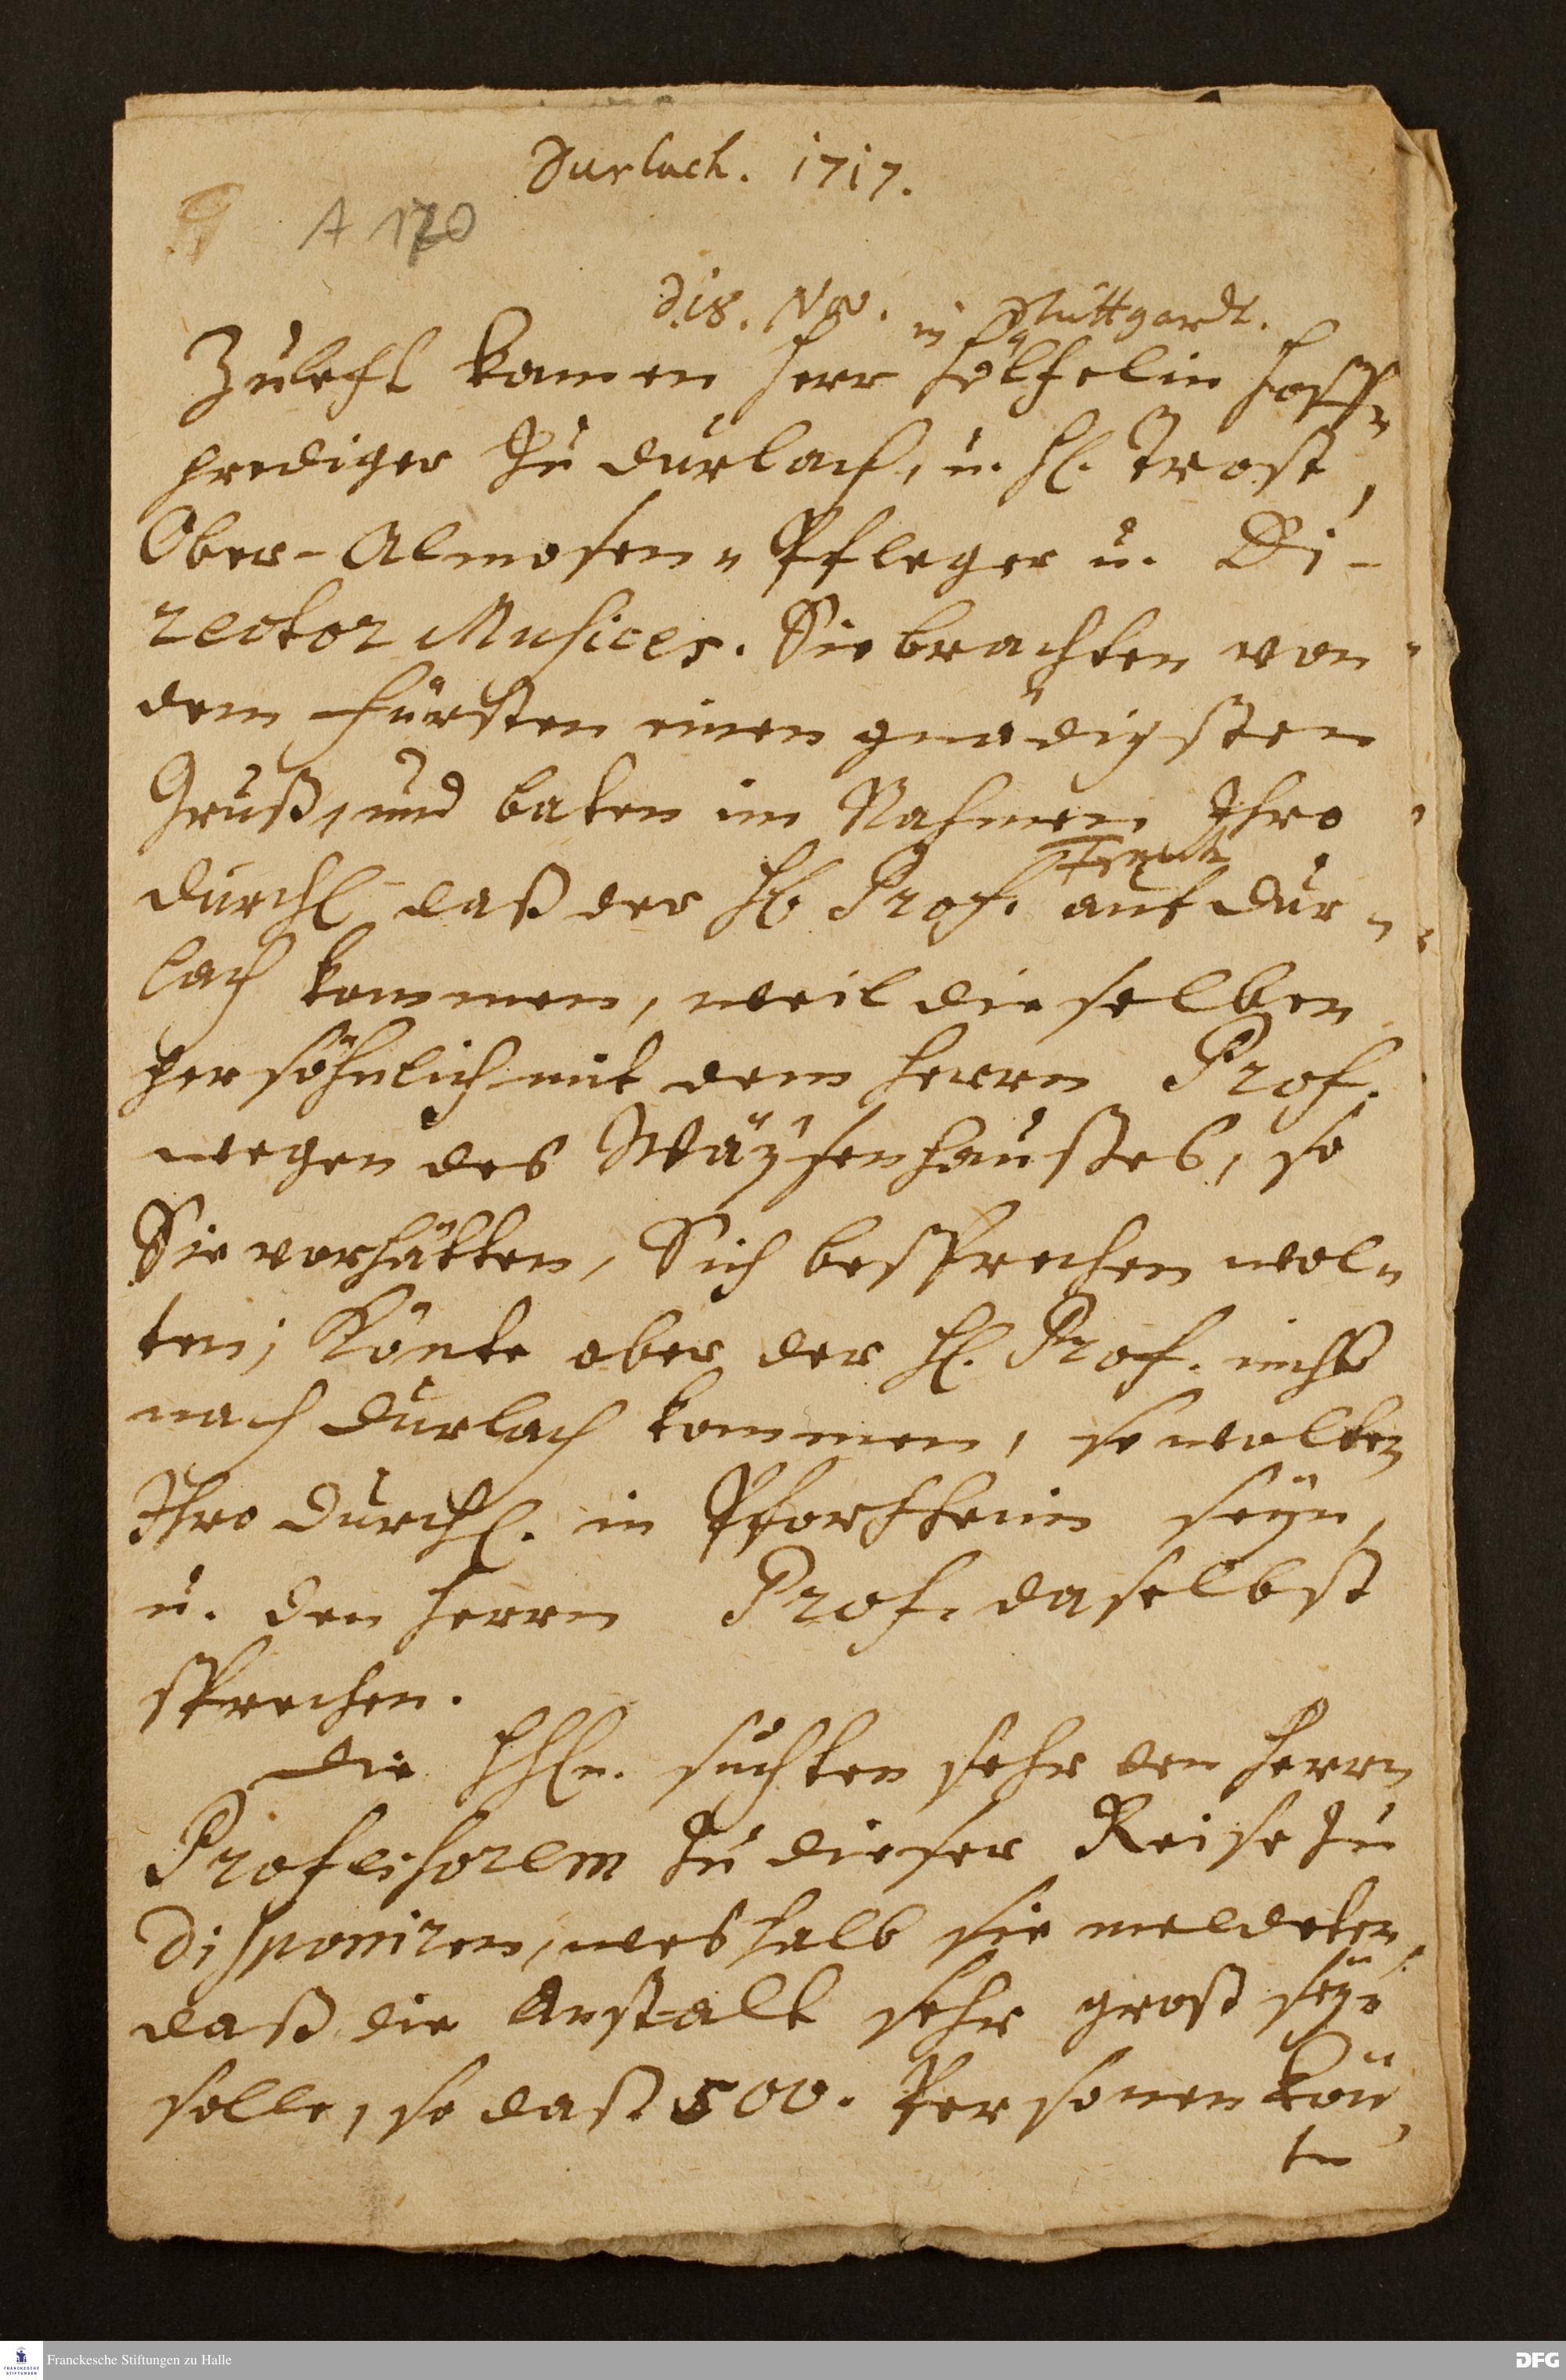 Durlach. 1717.
A 170
d. 18. Nov. in Stuttgardt.
Zulezt kamen Herr Hölzelin Hoff-
prediger zu Durlach, u. H. Trost,
Ober-Almosen-Pfleger u. Di-
rector Musices. Sie brachten von
dem Fürsten einen gnädigsten
Gruß, und baten im Nahmen Ihro
Durchl. daß der H. Prof. auf Dur-
lach kommen, weil dieselben
persöhnlich mit dem Herrn Prof.
wegen des Wäysenhaußes, so
Sie vorhätten, Sich besprechen wol-
ten; Könte aber der H. Prof. nicht
nach Durlach kommen, so wolten
Ihro Durchl. in Pfortzheim seyn,
u. den Herrn Prof. daselbst
sprechen.
Die HHn. suchten sehr den Herrn
Professorem zu dieser Reise zu
disponiren, weshalb sie meldeten,
daß die Anstalt sehr groß seyn
solle, so daß 500. Personen kön-
ten
Franckesche Stiftungen zu Halle
FRANCKESCHE STIFTUNGEN
DFG